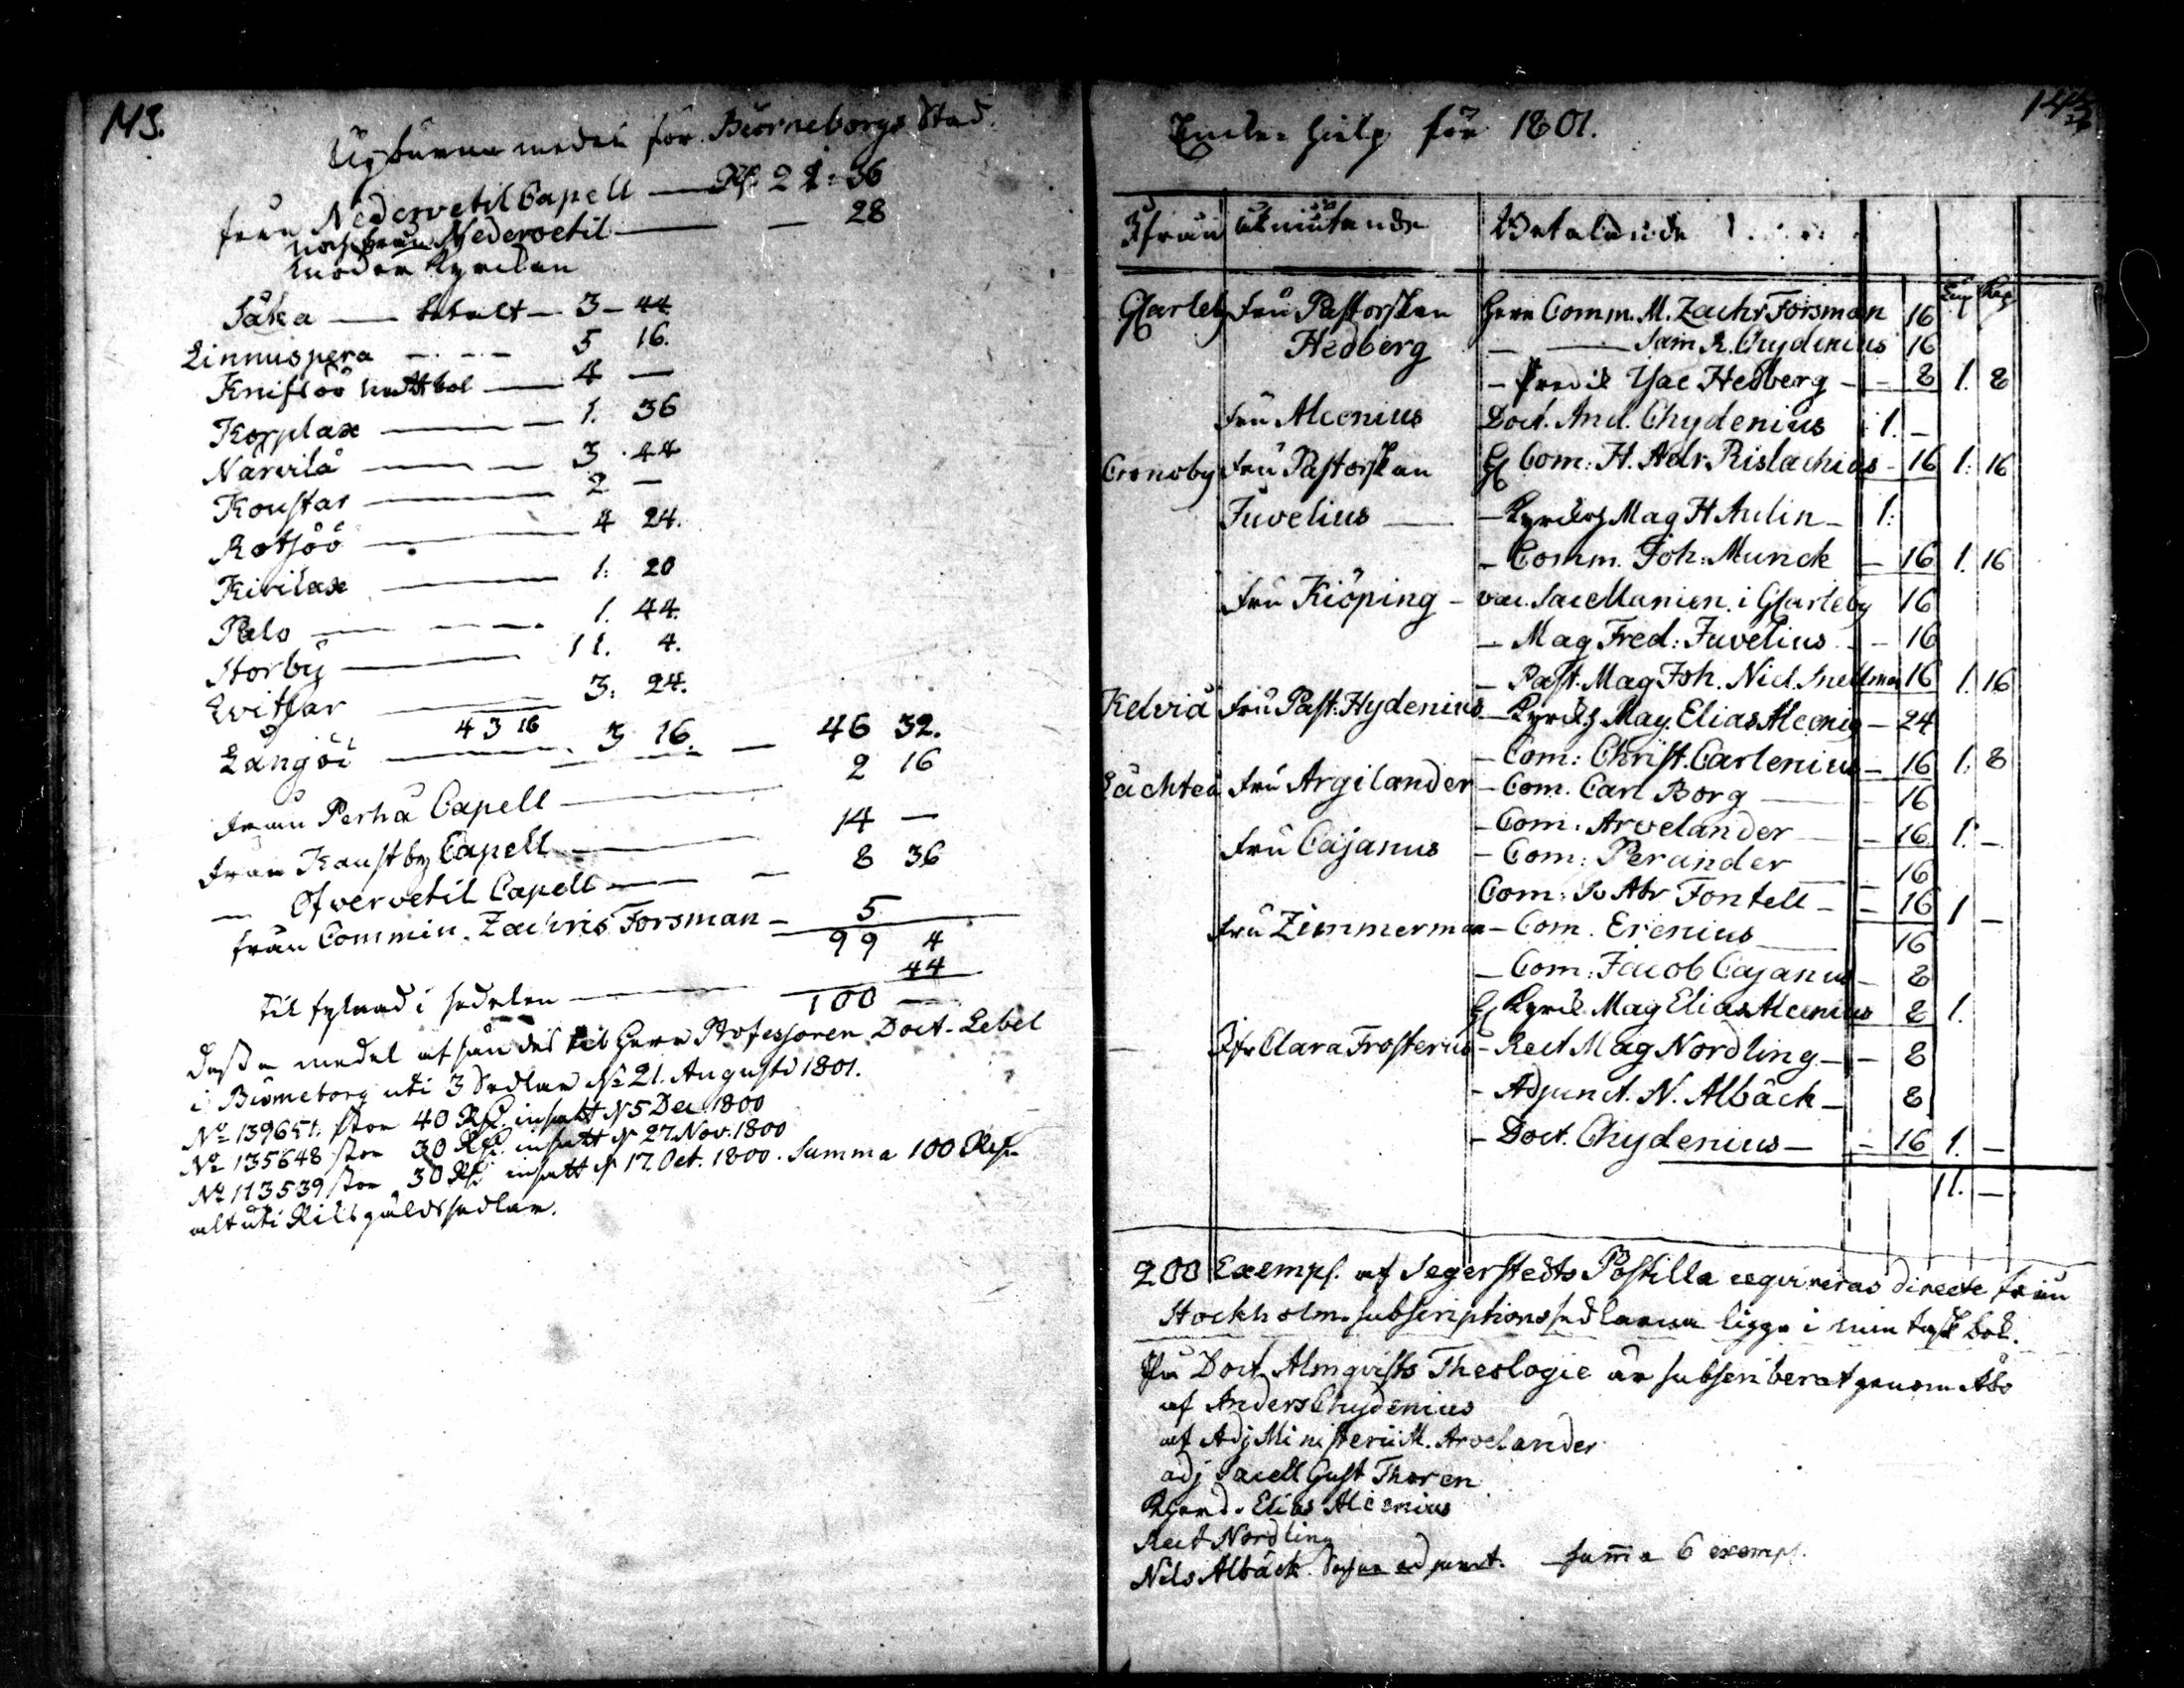 143.
Upburne medel för Biörneborgs Stad.
från Nedervetil Capell — Rf. 21 : 36
noch från Nedervetil — 28
moder Kyrckan
Såka — betalt — 3 — 44
Linnuspera — 5 16.
Knifsöö — 4 —
Korplax — 1. 36
Närvilä — 3 . 44
Koustar — 2 —
Rotsöö — 4 24.
Kivilax — 1. 20
Palo — 1. 44.
Storby — 11. 4.
Qvitlar — 3: 24.
43 16
Långöö — 3 16. — 46 32.
från Perhå Capell — 2 16
från Kaustby Capell — 14 —
— Öfvervetil Capell — 8 36
från Commin. Zachris Forsman — 5
99 4
Til fylnad i sedelen — 44
100 —
Desse medel afsändes til Herr Professoren Doct. Lebel
i Biörneborg uti 3 Sedlar d. 21. Augusti 1801.
No 139651. stor 40 Rf. insatt d 5 Dec. 1800
No 135648 stor 30 Rf. insatt d 27. Nov. 1800
No 113539 stor 30 Rf insatt d 17. Oct. 1800. Summa 100 Rf.
alt uti Riksgäldssedlar.
Enke hielp för 1801.
Ifrån Åtniutande Betalande
GCarleby Fru Pastorskan Herr Comm. M. Zachr Forsman 16
Hedberg — — Sam R. Chydenius 16
— Predik Isac Hedberg — 8 1. 8
Fru Alcenius Doct. And. Chydenius 1. —
Cronoby Fru Pastorskan H Com: H. Adr. Rislachius — 16 1: 16
Juvelius — — Kyrckoh Mag H Aulin — 1:
— Comm. Joh: Munck — 16 1. 16
Fru Kiöping — vac. Sacellanien. i GCarleby 16
— Mag Fred: Juvelius — 16
— Past. Mag Joh. Nicl. Snellman 16 1. 16
Kelviå Fru Past: Hydenius — Kyrckoh Mag. Elias Alcenig — 24
— Com: Christ. Carlenius — 16 1: 8
Låchteå Fru Argilander — Com. Carl Borg — 16
— Com: Arvelander — 16 1. —
Fru Cajanus — Com: Perander — 16
Com: Abr Fontell — 16 1 —
Fru Zimmerman — Com. Erenius — 16
— Com: Jacob Cajanus — 8
H Kyrck. Mag Elias Alcenius 8 1.
Jfr Clara Frosterus — Rect Mag Nordling — 8
— Adjunct. N. Albäck — 8
— Doct. Chydenius — 16 1. —
11. —
200 Exempl. af Segerstedts Postilla reqvireras directe från
Stockholm. subscriptionssedlarna ligga i min task bok.
På Doct. Almqvists Theologie är subscriberat genom Åbo
af Anders Chydenius
af Adj Ministerii M. Arvelander
adj Sacell Gust Thoren
Kyrckoh. Elias Alcenius
Rect Nordling
Nils Albäck. adjunct. Summa 6 exempl.